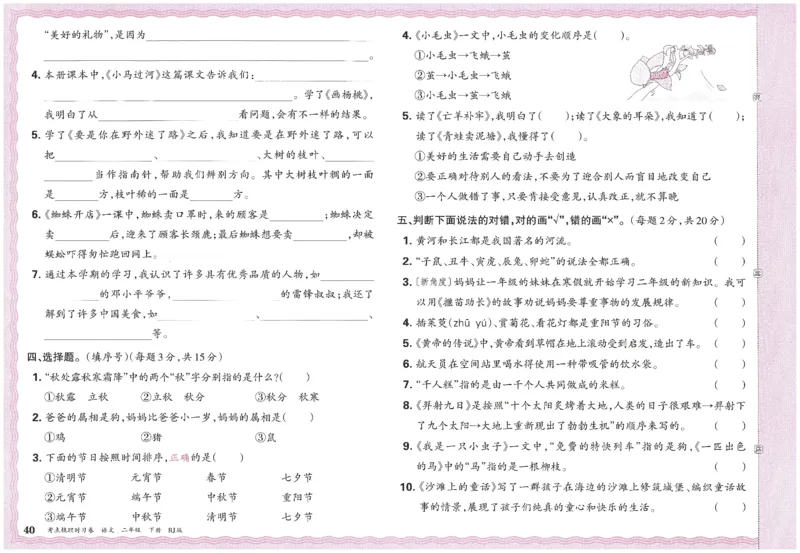 “美好的礼物”,是因为
。
4. 本册课本中,《小马过河》这篇课文告诉我们:
。学了《画杨桃》,
我明白了从 看问题,会有不一样的结果。
5. 学了《要是你在野外迷了路》之后,我知道要是在野外迷了路,可以
把 、 、大树的枝叶、
当作指南针,帮助我们辨别方向。其中大树枝叶稠的一面
是 方,枝叶稀的一面是 方。
6. 《蜘蛛开店》一课中,蜘蛛卖口罩时,来的顾客是 ;蜘蛛决定
卖 后,迎来了顾客长颈鹿;最后蜘蛛想要卖 ,却被
蜈蚣吓得匆忙跑回网上。
7. 通过本学期的学习,我认识了许多具有优秀品质的人物,如
的邓小平爷爷, 的雷锋叔叔;我还了
解到了许多中国美食,如 、 、
等。
四、选择题。(填序号)(每题3分,共15分)
1. “秋处露秋寒霜降”中的两个“秋”字分别指的是什么?( )
①秋露 立秋 ②立秋 秋分 ③秋分 秋寒
2. 爸爸的属相是狗,妈妈比爸爸小一岁,妈妈的属相是( )
①鸡 ②猪 ③鼠
3. 下面的节日按照时间排序,正确的是( )
①清明节 元宵节 春节 七夕节
②元宵节 端午节 中秋节 重阳节
③端午节 中秋节 清明节 七夕节
40 考点梳理时习卷 语文 二年级 下册 RJ版
4. 《小毛虫》一文中,小毛虫的变化顺序是( )。
①小毛虫→飞蛾→茧
②茧→小毛虫→飞蛾
③小毛虫→茧→飞蛾
5. 读了《亡羊补牢》,我明白了( );读了《大象的耳朵》,我知道了( );
读了《青蛙卖泥塘》,我懂得了( )。
①美好的生活需要自己动手去创造
②要正确对待别人的看法,不要为了迎合别人而盲目地改变自己
③一个人做错了事,只要肯接受意见,认真改正,就不算晚
五、判断下面说法的对错,对的画“√”,错的画“×”。(每题2分,共20分)
1. 黄河和长江都是我国著名的河流。 ( )
2. “子鼠、丑牛、寅虎、辰兔、卯蛇”的说法全都正确。 ( )
3. [新角度]妈妈让一年级的妹妹在寒假就开始学习二年级的新知识。我可
以用《揠苗助长》的故事劝说妈妈要尊重事物的发展规律。 ( )
4. 插茱萸(zhū yú)、赏菊花、看花灯都是重阳节的习俗。 ( )
5. 《黄帝的传说》中,黄帝看到草帽在地上滚动受到启发,造出了车。 ( )
6. 航天员在空间站里喝水得使用一种带吸管的饮水袋。 ( )
7. “千人糕”指的是由一千个人共同做成的米糕。 ( )
8. 《羿射九日》是按照“十个太阳炙烤着大地,人类的日子很艰难→羿射下
了九个太阳→大地上重新现出了勃勃生机”的顺序来写的。 ( )
9. 《我是一只小虫子》一文中,“免费的特快列车”指的是狗,《一匹出色
的马》中的“马”指的是一根柳枝。 ( )
10. 《沙滩上的童话》写了一群孩子在海边的沙滩上修筑城堡、编织童话故
事的情景,展现了孩子们纯真的童心和快乐的生活。 ( )